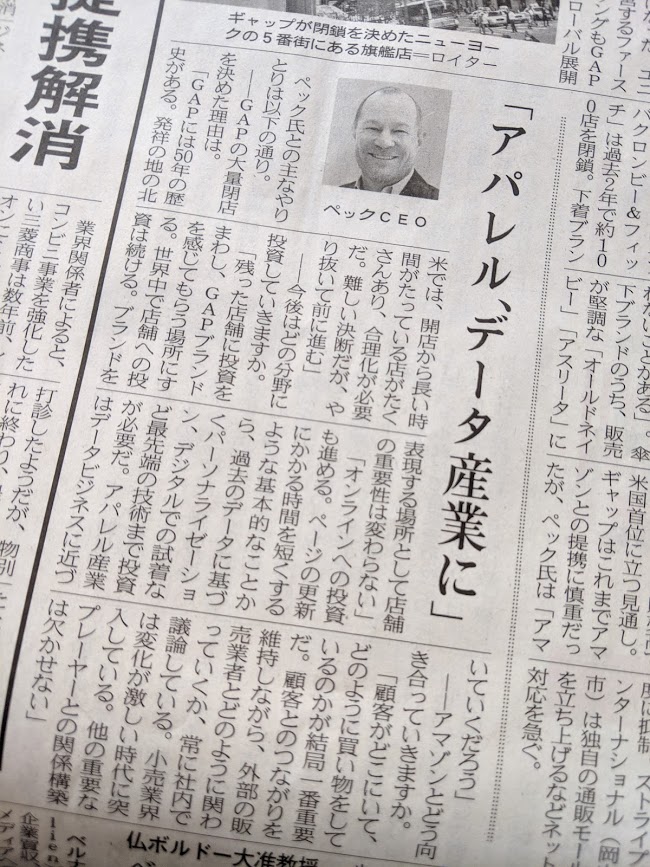 営するファース
ングもGAP
ローバル展開
バクロンビー&フィッ
チ」は過去2年で約10
0店を閉鎖。下着ブラン
れないことがある。傘
下ブランドのうち、販売
が堅調な「オールドネイ
ビー」「アスリータ」に
米国首位に立つ見通し。
ギャップはこれまでアマ
ゾンとの提携に慎重だっ
たが、ペック氏は「アマ
ストライプ
ンターナショナル(岡
市)は独自の通販モー
を立ち上げるなどネット
対応を急ぐ。
ギャップが閉鎖を決めたニューヨー
クの5番街にある旗艦店=ロイター
「アパレル、データ産業に」
ペックCEO
ペック氏との主なやり
とりは以下の通り。
――GAPの大量閉店
を決めた理由は。
「GAPには50年の歴
史がある。発祥の地の北
米では、開店から長い時
間がたっている店がたく
さんあり、合理化が必要
だ。難しい決断だが、や
り抜いて前に進む」
――今後はどの分野に
投資していきますか。
「残った店舗に投資を
まわし、GAPブランド
を感じてもらう場所にす
る。世界中で店舗への投
資は続ける。ブランドを
表現する場所として店舗
の重要性は変わらない」
「オンラインへの投資
も進める。ページの更新
にかかる時間を短くする
ような基本的なことか
ら、過去のデータに基づ
くパーソナライゼーショ
ン、デジタルでの試着な
ど最先端の技術まで投資
が必要だ。アパレル産業
はデータビジネスに近づ
いていくだろう」
――アマゾンとどう向
き合っていきますか。
「顧客がどこにいて、
どのように買い物をして
いるのかが結局一番重要
だ。顧客とのつながりを
維持しながら、外部の販
売業者とどのように関わ
っていくか、常に社内で
議論している。小売業界
は変化が激しい時代に突
入している。他の重要な
プレーヤーとの関係構築
は欠かせない」
提携解消
業界関係者によると、
コンビニ事業を強化した
い三菱商事は数年前、
打診したようだが、
れに終わり、
物別
仏ボルドー大准教授
企業買収
メディア